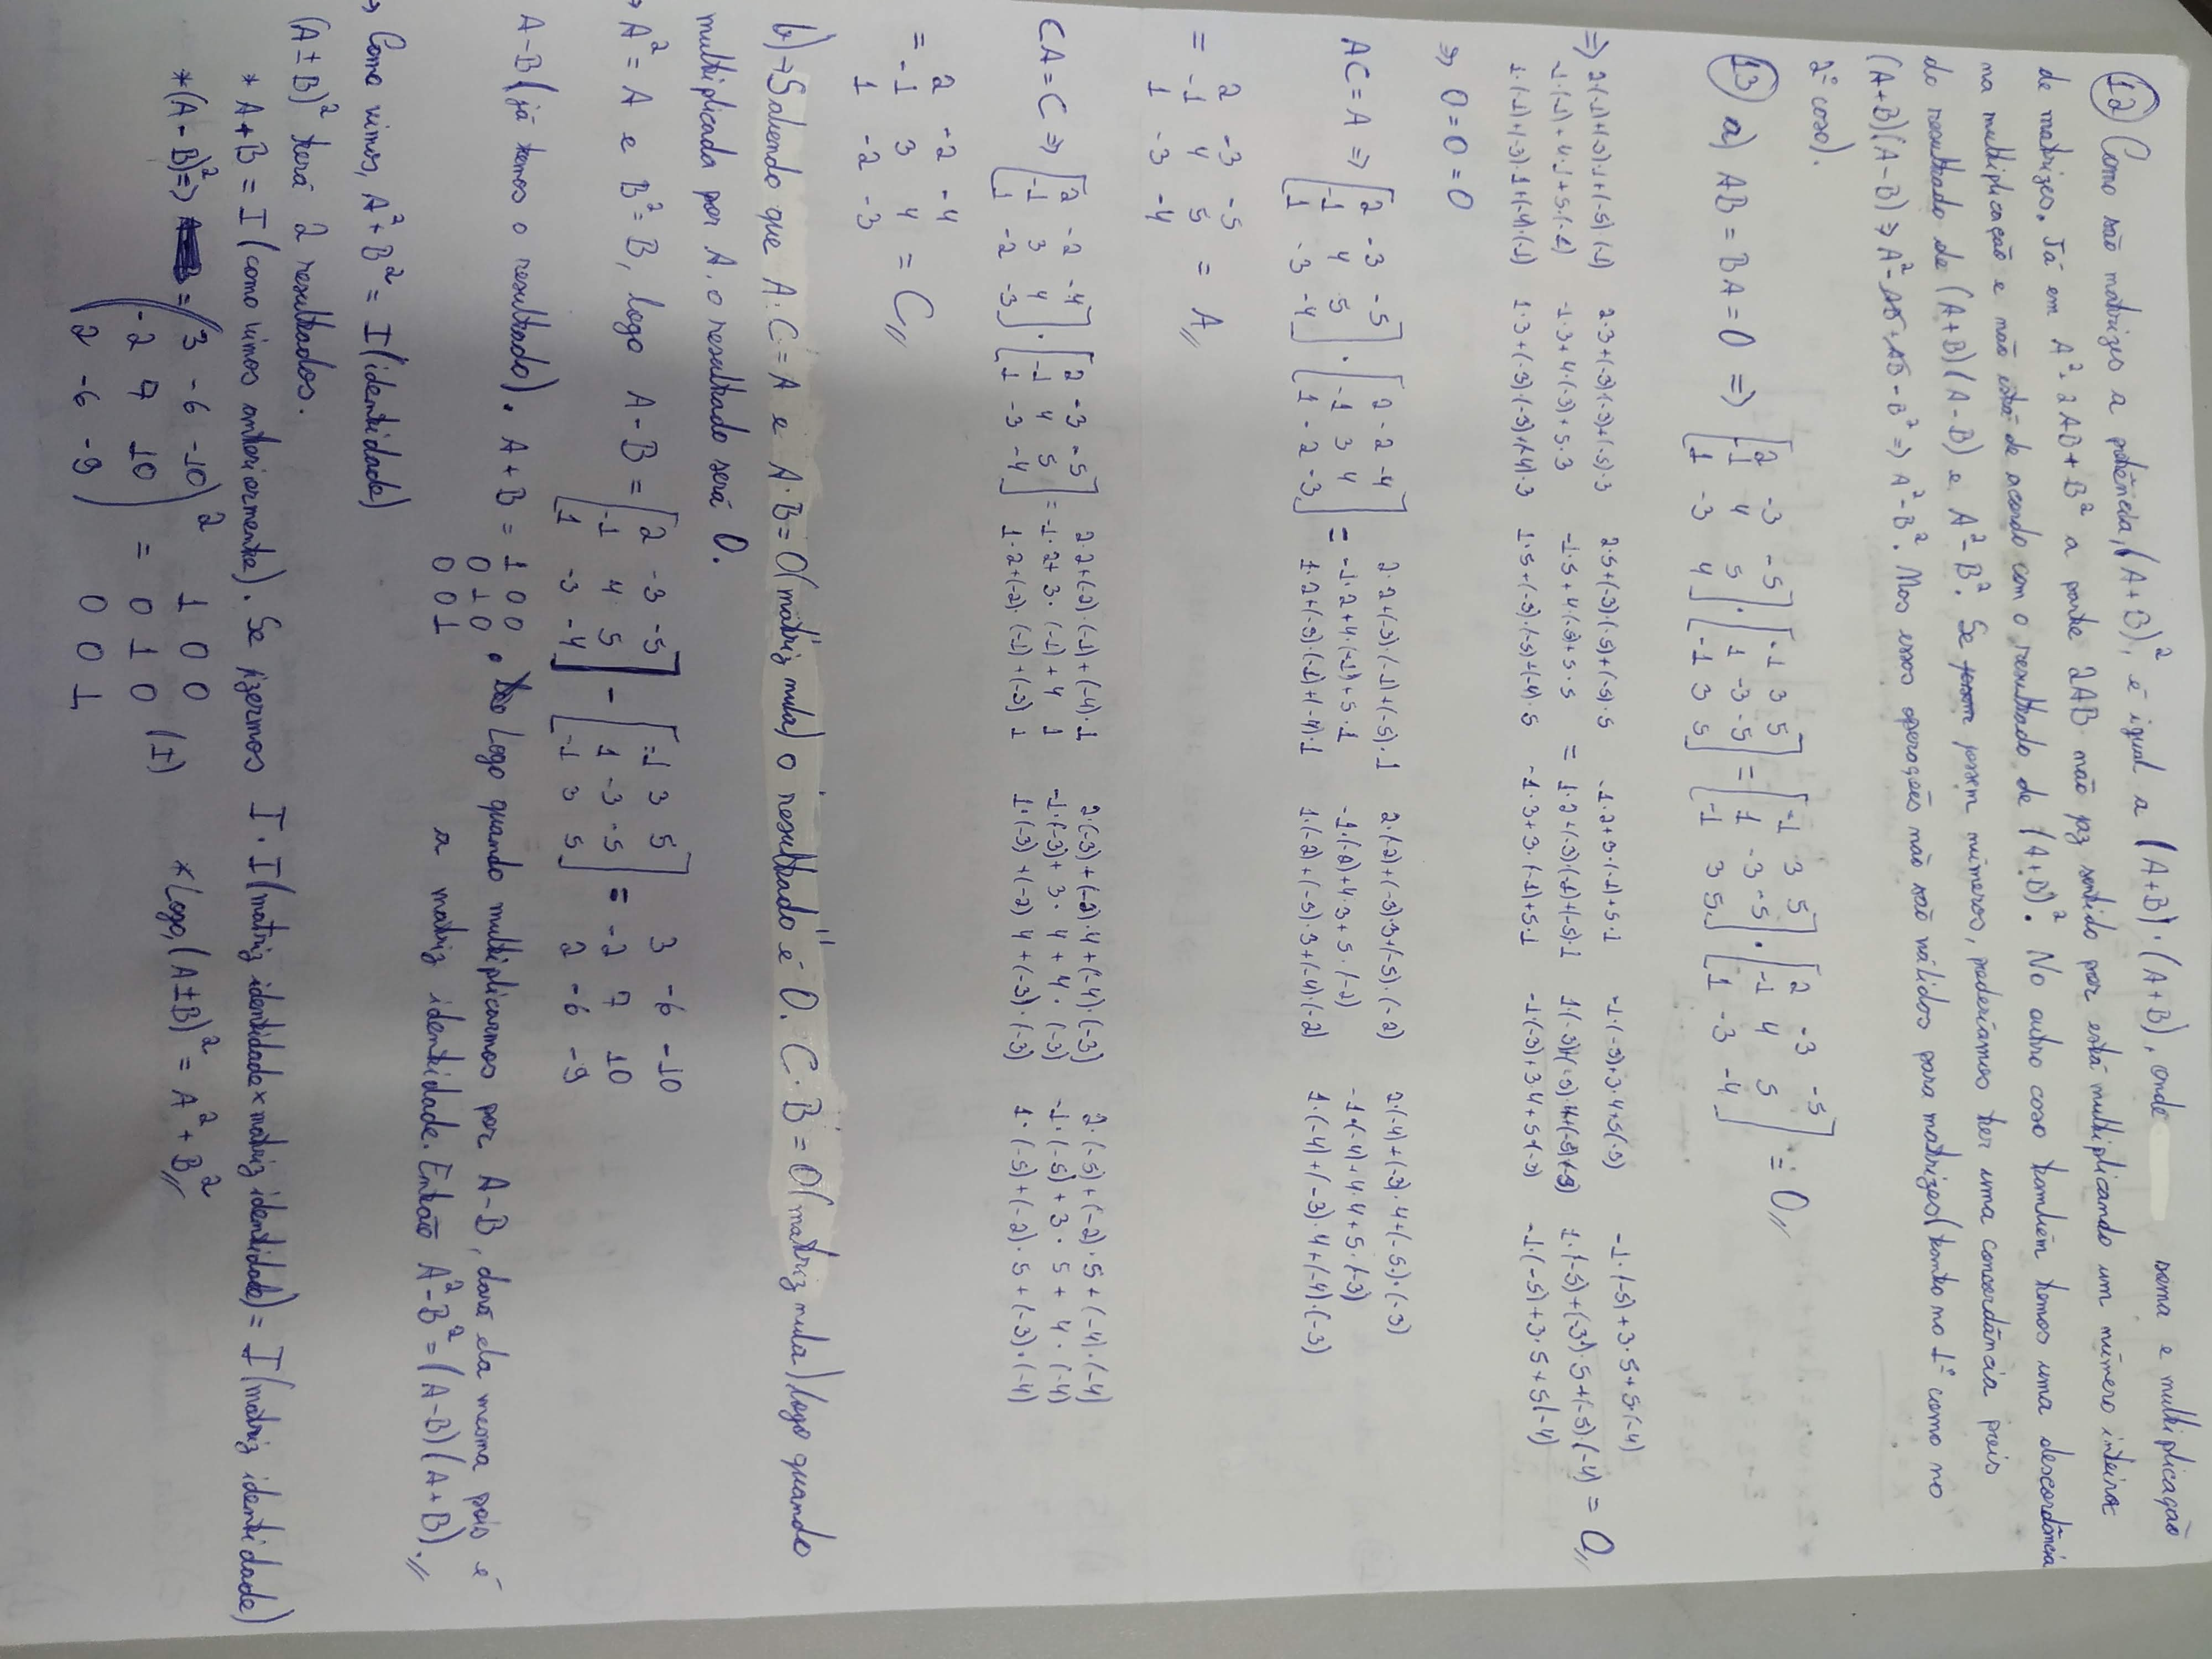 12) Como são matrizes a potência, (A+B)², é igual a (A+B)·(A+B), onde soma e multiplicação
de matrizes. Já em A²+2AB+B² a parte 2AB não faz sentido por está multiplicando um número inteiro
na multiplicação e não está de acordo com o resultado de (A+B)². No outro caso também temos uma descordância
do resultado de (A+B)(A-B) e A²-B². Se fossem números, poderíamos ter uma concordância pois
(A+B)(A-B) ⇒ A²-AB+AB-B² ⇒ A²-B². Mas essas operações não são válidas para matrizes (tanto no 1º como no
2º caso).
13) a) AB = BA = 0 ⇒ [2 -3 -5 · [-1 3 5 = [-1 3 5 · [2 -3 -5 = 0//
-1 4 5 1 -3 -5 1 -3 -5 -1 4 5
1 -3 4] -1 3 5] -1 3 5] 1 -3 -4]
⇒ 2·(-1)+(-3)·1+(-5)·(-1) 2·3+(-3)·(-3)+(-5)·3 2·5+(-3)·(-5)+(-5)·5 -1·2+3·(-1)+5·1 -1·(-3)+3·4+5(-3) -1·(-5)+3·5+5(-4)
-1·(-1)+4·1+5·(-1) -1·3+4·(-3)+5·3 -1·5+4·(-5)+5·5 = 1·2+(-3)(-1)+(-5)·1 1(-3)+(-3)·4+(-5)(-3) 1·(-5)+(-3)·5+(-5)·(-4) = 0//
1·(-1)+(-3)·1+(-4)·(-1) 1·3+(-3)·(-3)+(-4)·3 1·5+(-3)·(-5)+(-4)·5 -1·3+3·(-1)+5·1 -1(-3)+3·4+5(-3) -1·(-5)+3·5+5(-4)
⇒ 0 = 0 = 0
AC = A ⇒ [2 -3 -5 · [2 -2 -4 = 2·2+(-3)·(-1)+(-5)·1 2·(-2)+(-3)·3+(-5)·(-2) 2·(-4)+(-3)·4+(-5)·(-3)
-1 4 5 -1 3 4 -1·2+4·(-1)+5·1 -1·(-2)+4·3+5·(-2) -1·(-4)+4·4+5·(-3)
1 -3 -4] 1 -2 -3] 1·2+(-3)·(-1)+(-4)·1 1·(-2)+(-3)·3+(-4)·(-2) 1·(-4)+(-3)·4+(-4)·(-3)
2 -3 -5
= -1 4 5 = A//
1 -3 -4
CA = C ⇒ [2 -2 -4 · [2 -3 -5 2·2+(-2)·(-1)+(-4)·1 2·(-3)+(-2)·4+(-4)·(-3) 2·(-5)+(-2)·5+(-4)·(-4)
-1 3 4 -1 4 5 = -1·2+3·(-1)+4 1 -1·(-3)+3·4+4·(-3) -1·(-5)+3·5+4·(-4)
1 -2 -3] 1 -3 -4] 1·2+(-2)·(-1)+(-3) 1 1·(-3)+(-2) 4+(-3)·(-3) 1·(-5)+(-2)·5+(-3)·(-4)
2 -2 -4
= -1 3 4 = C//
1 -2 -3
b) → Sabendo que A·C = A e A·B = 0 (matriz nula) o resultado é 0. C·B = 0 (matriz nula), logo quando
multiplicada por A, o resultado será 0.
→ A² = A e B² = B, logo A-B = [2 -3 -5 - [-1 3 5 = 3 -6 -10
-1 4 5 1 -3 -5 -2 7 10
1 -3 -4] -1 3 5] 2 -6 -9
A-B (já temos o resultado). A+B = 1 0 0 . Logo quando multiplicarmos por A-B, dará ela mesma pois é
0 1 0
0 0 1 a matriz identidade. Então A²-B² = (A-B)(A+B).//
→ Como vimos, A²+B² = I (identidade)
(A±B)² terá 2 resultados.
* A+B = I (como vimos anteriormente). Se fizermos I·I (matriz identidade × matriz identidade) = I (matriz identidade)
* (A-B)² ⇒ = (3 -6 -10 )² = 1 0 0 (I) * Logo, (A±B)² = A²+B²//
-2 7 10 0 1 0
2 -6 -9 0 0 1